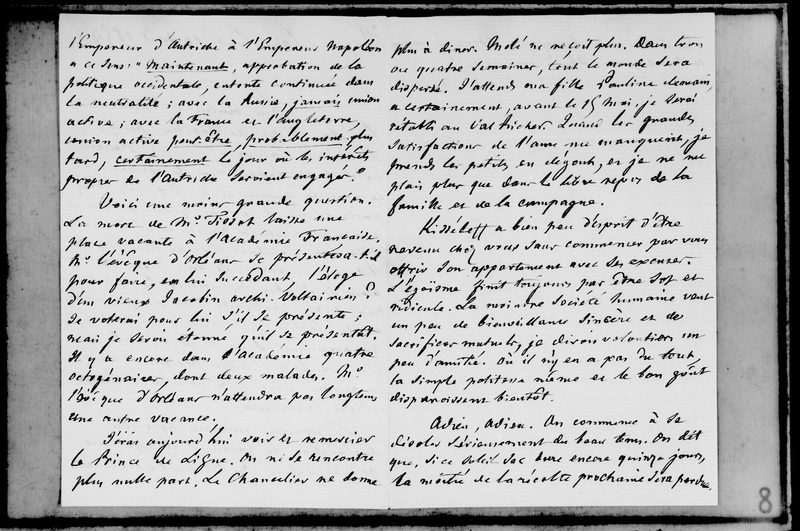 l'Empereur d'Autriche à l'Empereur Napoléon
a ce sens : "Maintenant, approbation de la
politique occidentale, entente continuée dans
la neutralité ; avec la Russie, jamais union
active ; avec la France et l'Angleterre,
union active peut-être, probablement plus
tard, certainement le jour où les intérêts
propres de l'Autriche seroient engagés."
Voici une moins grande question.
La mort de Mr. Tissot laisse une
place vacante à l'Académie Française.
Mr. l'évêque d'Orléans se présentera-t-il
pour faire, en lui succédant, l'éloge
d'un vieux Jacobin archi-Voltairien ?
Je voterai pour lui s'il se présente ;
mais je serois étonné qu'il se présentât.
Il y a encore dans l'Académie quatre
octogénaires, dont deux malades. Mr.
l'évêque d'Orléans n'attendra pas longtems
une autre vacance.
J'irai aujourd'hui voir et remercier
le Prince de Ligne. On ne se rencontre
plus nulle part. Le Chancelier ne donne
plus à diner. Molé ne reçoit plus. Dans trois
ou quatre semaines, tout le monde sera
dispersé. J'attends ma fille Pauline demain,
et certainement, avant le 15 Mai, je serai
rétabli au Val Richer. Quand les grandes
satisfactions de l'ame me manquent, je
prends les petites en dégout, et je ne me
plais plus que dans le libre repos de la
famille et de la campagne.
Kisséleff a bien peu d'esprit d'être
revenu chez vous sans commencer par vous
offrir son appartement avec ses excuses.
L'égoïsme finit toujours par être sot et
ridicule. La moindre société humaine veut
un peu de bienveillance sincère et de
sacrifices mutuels, je dirois volontiers un
peu d'amitié. Où il n'y en a pas du tout,
la simple politesse même et le bon goût
disparoissent bientôt.
Adieu, Adieu. On commence à se
désoler sérieusement du beau tems. On dit
que, si ce soleil sec dure encore quinze jours,
la moitié de la récolte prochaine sera perdue.
8